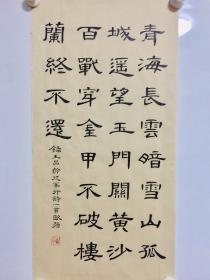 青海長雲暗雪山孤
城遙望玉門關黃沙
百戰穿金甲不破樓
蘭終不還
錄王昌齡從軍行詩一首